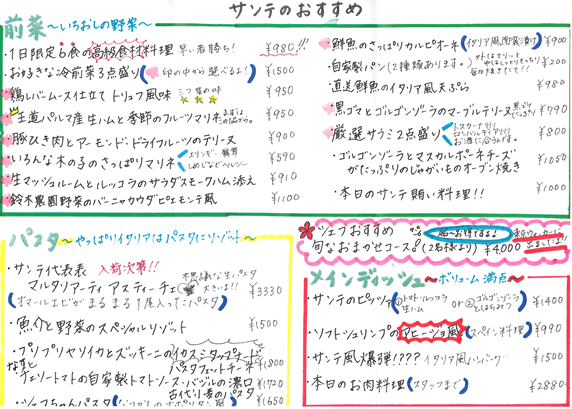 サンテのおすすめ
前菜 ～いちおしの野菜～
・1日限定6食の高級食材料理 早い者勝ち! ¥980!!!
・お好きな冷前菜3点盛り(印の中から選べるよ!) ¥1500
・鶏レバームース仕立て トリュフ風味 三ツ星の味 ¥950
・王道パルマ産生ハムと季節のフルーツマリネ ¥980
・豚ひき肉とアーモンド・ドライフルーツのテリーヌ ¥900
・いろんな木の子のさっぱりマリネ エリンギ、舞茸 しめじなどヘルシー ¥590
・生マッシュルームとルッコラのサラダスモークハム添え ¥910
・鈴木農園野菜のバーニャカウダピエモンテ風 ¥1100
・鮮魚のさっぱりカルピオーネ(イタリア風南蛮漬け) ¥900
・自家製パン(2種類あります。) ¥200
・直送鮮魚のイタリア風天ぷら ¥980
・黒ゴマとゴルゴンゾーラのマーブルテリーヌ ¥790
・厳選サラミ2点盛り お酒に合うんです。 ¥800
・ゴルゴンゾーラとマスカルポーネチーズ
がたっぷりのじゃがいものオーブン焼き ¥1050
・本日のサンテ賄い料理!! ¥1000
パスタ ～やっぱりイタリアはパスタにリゾット～
・サンテ代表 入荷次第!!
マルタリアーティ アスティーチェ 不思議な生パスタ 大きい!! ¥3330
(オマールエビがまるまる1尾入ったパスタ)
・魚介と野菜のスペシャルリゾット ¥1500
・プリプリヤリイカとズッキーニのイカスミタップナード
パスタフェットチーネ ¥1800
・なすとチェリートマトの自家製トマトソース・バジルの濃口
古代小麦のパスタ ¥1720
・シェフちゃんパスタ ¥1650
シェフおすすめ
旬なおまかせコース(2名様より) ¥4,000
メインディッシュ ～ボリューム満点～
・サンテのピッツァ(①トマト・ルッコラ 生ハム or ②ゴルゴンゾーラ とはちみつ) ¥1400
・ソフトシュリンプのアヒージョ風(スペイン料理) ¥990
・サンテ風爆弾!??? イタリア風ハンバーグ ¥1500
・本日のお肉料理(スタッフまで) ¥2880～